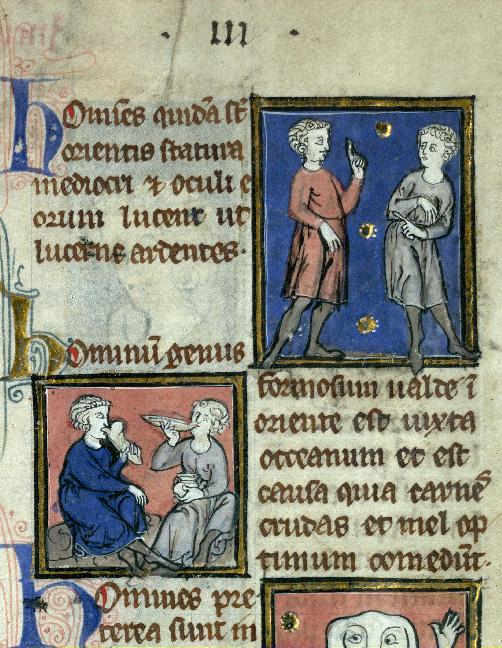 · III ·
Homines quidā st̄
orientis statura
mediocri ⁊ oculi e
orum lucent ut
lucerne ardentes·
Hominū genus
formosum ualde ī
oriente est iuxta
occeanum et est
causa quia carnes
crudas et mel op
timum comedūt·
Homines pre
terea sunt in